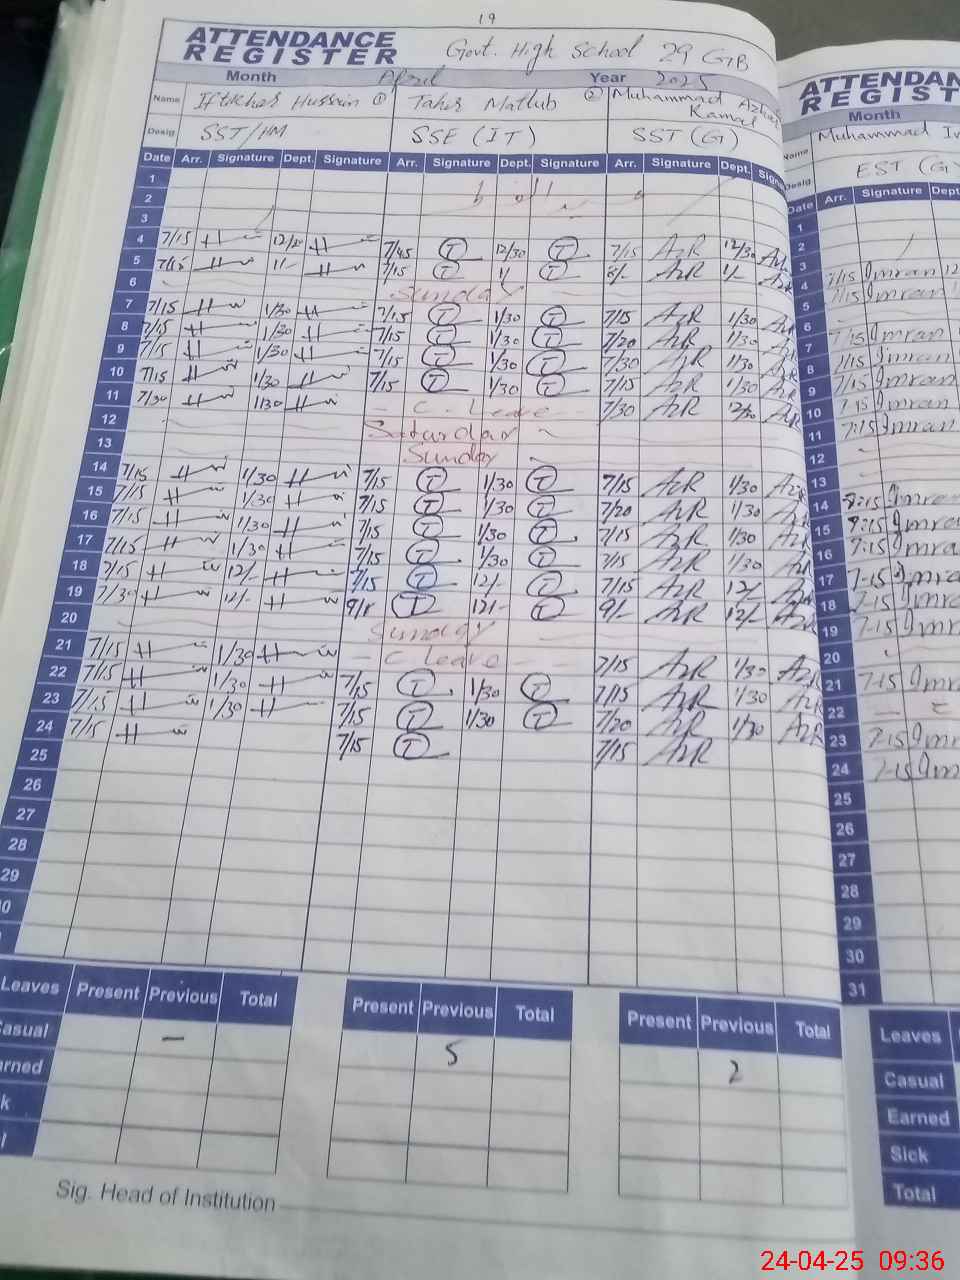 19
ATTENDANCE REGISTER Govt. High School 29 GB
Month April Year 2025
Name Iftikhar Hussain ① Taher Matlub ② Muhammad Azhar Kamal
Desig. SST/HM SSE (IT) SST (G)
Date Arr. Signature Dept. Signature Arr. Signature Dept. Signature Arr. Signature Dept.
1
2
3
4 7/15 H 12/30 H 7/45 T 12/30 T 7/15 AzR 12/30 AzR
5 7/15 H 1/- H 7/15 T 1/ T AzR 1/- AzR
6 Sunday
7 7/15 H 1/30 H 7/15 T 1/30 T 7/15 AzR 1/30 AzR
8 7/15 H 1/30 H 7/15 T 1/30 T 7/20 AzR 1/30 AzR
9 7/15 H 1/30 H 7/15 T 1/30 T 7/30 AzR 1/30 AzR
10 7/15 H 1/30 H 7/15 T 1/30 T 7/15 AzR 1/30 AzR
11 7/30 H 1/30 H - C. Leave - 7/30 AzR 12/30 AzR
12 Saturday
13 Sunday
14 7/15 H 1/30 H 7/15 T 1/30 T 7/15 AzR 1/30 AzR
15 7/15 H 1/30 H 7/15 T 1/30 T 7/20 AzR 1/30 AzR
16 7/15 H 1/30 H 7/15 T 1/30 T 7/15 AzR 1/30 AzR
17 7/15 H 1/30 H 7/15 T 1/30 T 7/15 AzR 1/30 AzR
18 7/15 H 12/- H 7/15 T 12/- T 7/15 AzR 12/- AzR
19 7/30 H 12/- H T 12/- T 9/- AzR 12/- AzR
20 Sunday
21 7/15 H 1/30 H - C Leave - - 7/15 AzR 1/30 AzR
22 7/15 H 1/30 H 7/15 T 1/30 T 7/15 AzR 1/30 AzR
23 7/15 H 1/30 H 7/15 T 1/30 T 7/20 AzR 1/30 AzR
24 7/15 H 7/15 T 7/15 AzR
25
26
27
28
29
Leaves Present Previous Total Present Previous Total Present Previous Total
Casual - 5 2
Sig. Head of Institution
ATTENDAN
REGIST
Month
Name Muhammad
Desig. EST (G)
Date Arr. Signature Dept
1
2
3
4 7/15 Imran 12
5 7/15 Imran
6
7 7/15 Imran
8 7/15 Imran
9 7/15 Imran
10 7:15 Imran
11 7:15 Imran
12
13
14 Imran
15 Imran
16 7:15 Imran
17 7-15 Imran
18 7-15 Imran
19 7-15 Imran
20
21 7-15 Imran
22
23 7-15 Imran
24 7-15 Imran
25
26
27
28
29
30
31
Leaves
Casual
Earned
Sick
Total
24-04-25 09:36